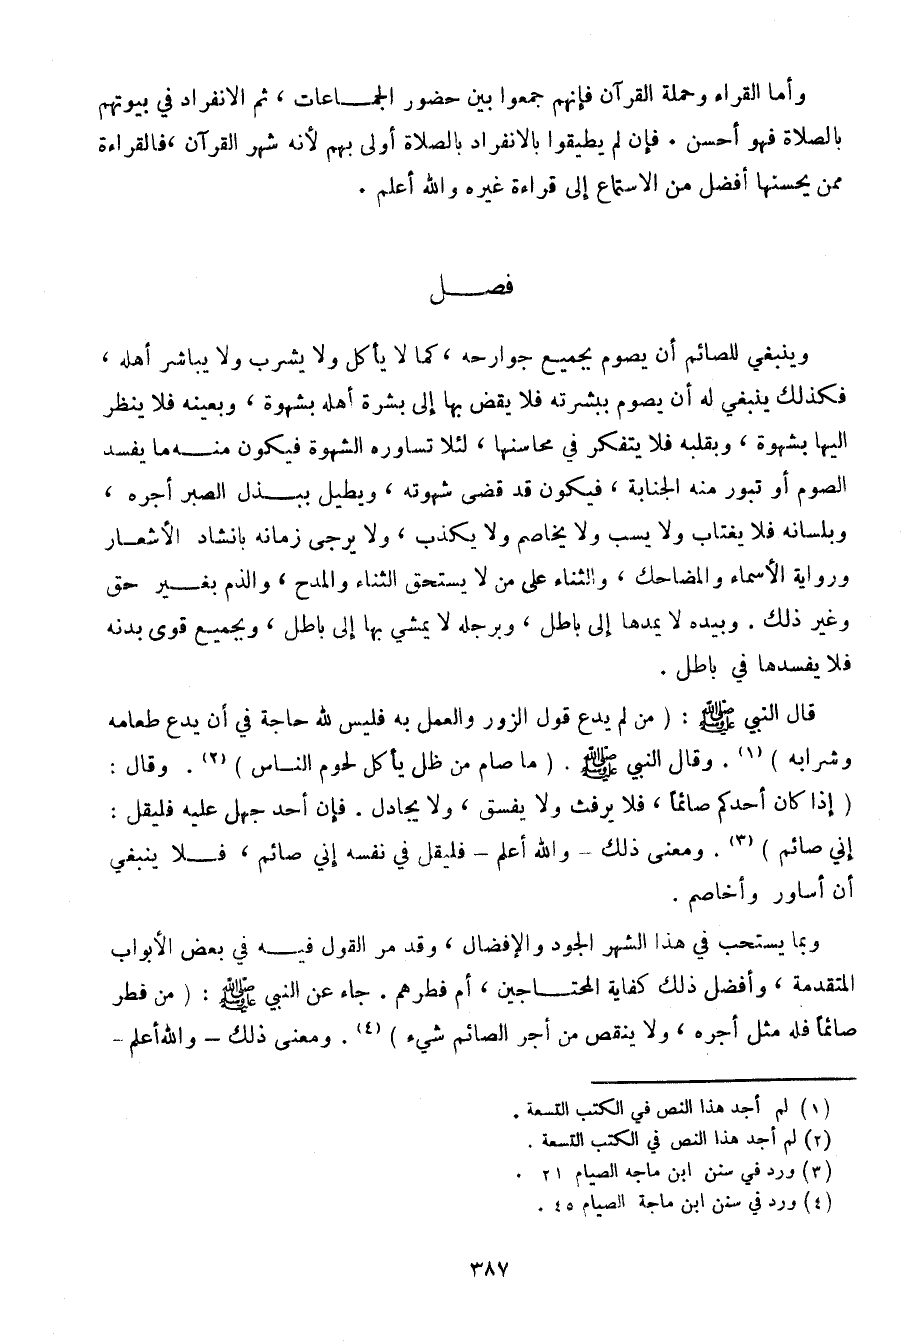 وأما القراء وحملة القرآن فإنهم جمعوا بين حضور الجمـــاعات ، ثم الانفراد في بيوتهم
بالصلاة فهو أحسن . فإن لم يطيقوا بالانفراد بالصلاة أولى بهم لأنه شهر القرآن ،فالقراءة
ممن يحسنها أفضل من الاستماع إلى قراءة غيره والله أعلم .
فصـــل
وينبغي للصائم أن يصوم بجميع جوارحه ، كما لا يأكل ولا يشرب ولا يباشر أهله ،
فكذلك ينبغي له أن يصوم ببشرته فلا يقض بها إلى بشرة أهله بشهوة ، وبعينه فلا ينظر
اليها بشهوة ، وبقلبه فلا يتفكر في محاسنها ، لئلا تساوره الشهوة فيكون منـــه ما يفسد
الصوم أو تبور منه الجنابة ، فيكون قد قضى شهوته ، ويطيل ببـــذل الصبر أجره ،
وبلسانه فلا يغتاب ولا يسب ولا يخاصم ولا يكذب ، ولا يرجى زمانه بانشاد الأشعـــار
ورواية الأسماء والمضاحك ، والثناء على من لا يستحق الثناء والمدح ، والذم بغـــير حق
وغير ذلك . وبيده لا يمدها إلى باطل ، وبرجله لا يمشي بها إلى باطل ، وبجميع قوى بدنه
فلا يفسدها في باطل .
قال النبي ﷺ : ( من لم يدع قول الزور والعمل به فليس لله حاجة في أن يدع طعامه
وشرابه ) (١) . وقال النبي ﷺ . ( ما صام من ظل يأكل لحوم النـاس ) (٢) . وقال :
( إذا كان أحدكم صائماً ، فلا يرفث ولا يفسق ، ولا يجادل . فإن أحد جهل عليه فليقل :
إني صائم ) (٣) . ومعنى ذلك – والله أعلم – فليقل في نفسه إني صائم ، فـــلا ينبغي
أن أساور وأخاصم .
وبما يستحب في هذا الشهر الجود والإفضال ، وقد مر القول فيـــه في بعض الأبواب
المتقدمة ، وأفضل ذلك كفاية المحتـــاجين ، أم فطرهم . جاء عن النبي ﷺ : ( من فطر
صائماً فله مثل أجره ، ولا ينقص من أجر الصائم شيء ) (٤) . ومعنى ذلك – والله أعلم –
(١) لم أجد هذا النص في الكتب التسعة .
(٢) لم أجد هذا النص في الكتب التسعة .
(٣) ورد في سنن ابن ماجه الصيام ٢١ .
(٤) ورد في سنن ابن ماجة الصيام ٤٥ .
٣٨٧